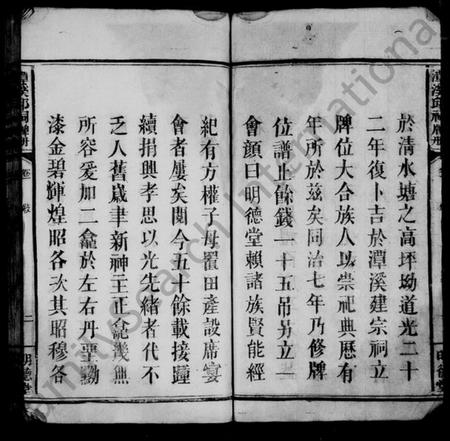 於清水塘之高坪坳道光二十
二年復卜吉於潭溪建宗祠立
牌位大合族人以崇祀典歷有
年所於茲矣同治七年乃修牌
位譜止餘錢一十五吊另立一
會顏曰明德堂賴諸族賢能經
紀有方權子母置田產設席宴
會者屢矣閱今五十餘載接踵
續捐興孝思以光先緒者代不
乏人舊歲聿新神主正龕幾無
所容爰加二龕於左右丹堊勷
漆金碧輝煌昭各次其昭穆各
潭溪邱祠牌冊
二
明德堂